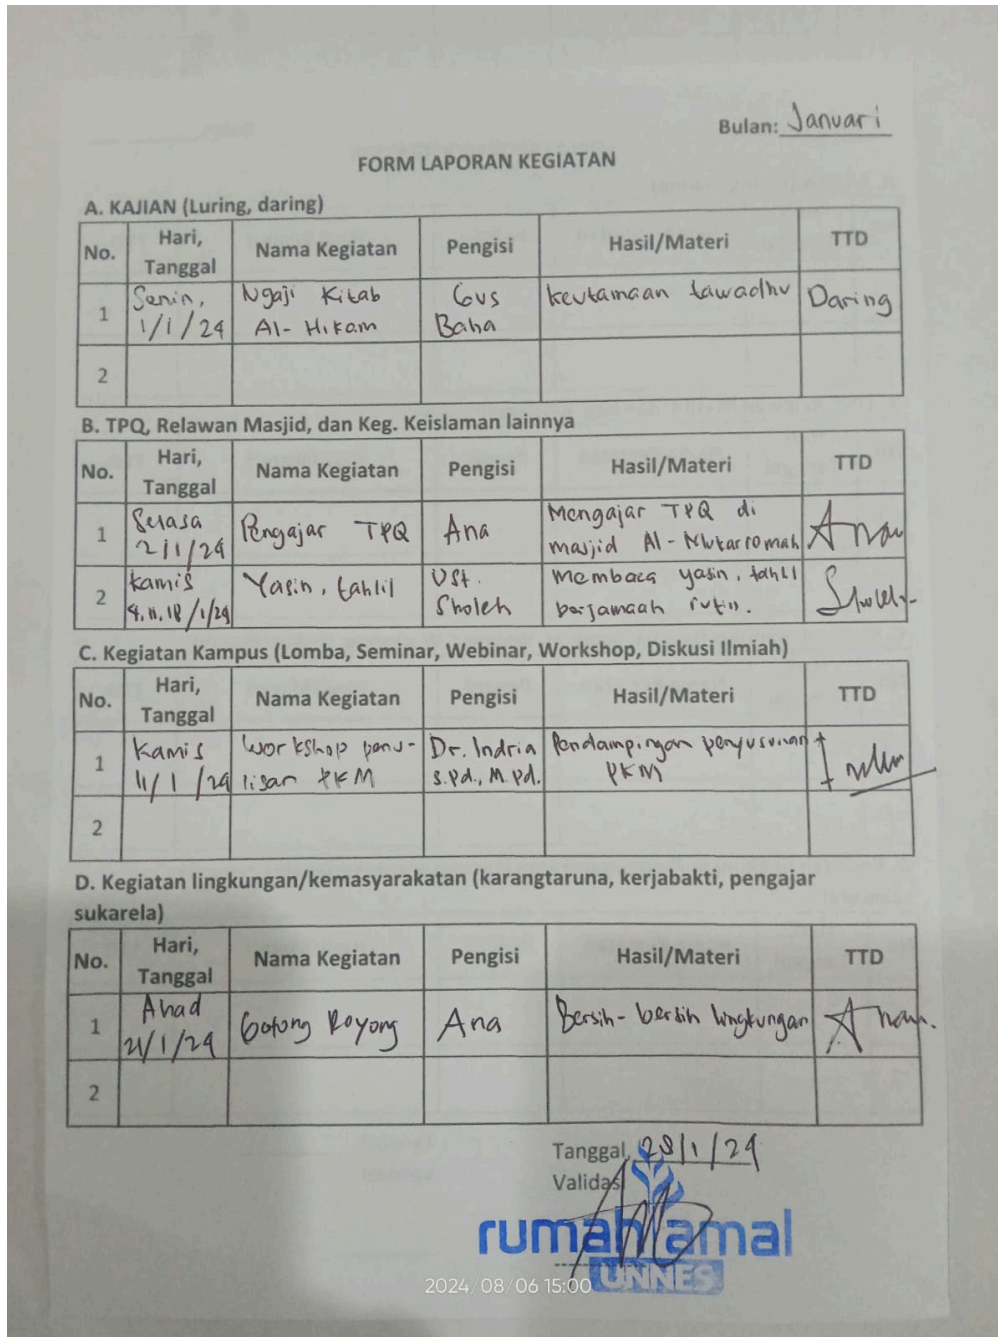 Bulan: Januari
FORM LAPORAN KEGIATAN
A. KAJIAN (Luring, daring)
No. Hari, Tanggal Nama Kegiatan Pengisi Hasil/Materi TTD
1 Senin, 1/1/24 Ngaji Kitab Al-Hikam Gus Baha keutamaan tawadhu Daring
2
B. TPQ, Relawan Masjid, dan Keg. Keislaman lainnya
No. Hari, Tanggal Nama Kegiatan Pengisi Hasil/Materi TTD
1 Selasa 2/1/24 Pengajar TPQ Ana Mengajar TPQ di masjid Al-Mukarromah Ana
2 Kamis 4,11,18/1/24 Yasin, tahlil Ust. Sholeh Membaca yasin, tahlil berjamaah rutin. Sholeh
C. Kegiatan Kampus (Lomba, Seminar, Webinar, Workshop, Diskusi Ilmiah)
No. Hari, Tanggal Nama Kegiatan Pengisi Hasil/Materi TTD
1 Kamis 11/1/24 Workshop penu-lisan PKM Dr. Indria S.Pd., M.Pd. Pendampingan penyusunan PKM
2
D. Kegiatan lingkungan/kemasyarakatan (karangtaruna, kerjabakti, pengajar
sukarela)
No. Hari, Tanggal Nama Kegiatan Pengisi Hasil/Materi TTD
1 Ahad 21/1/24 Gotong Royong Ana Bersih-bersih lingkungan Ana
2
Tanggal, 28/1/24
Validasi
rumah amal
UNNES
2024/08/06 15:00